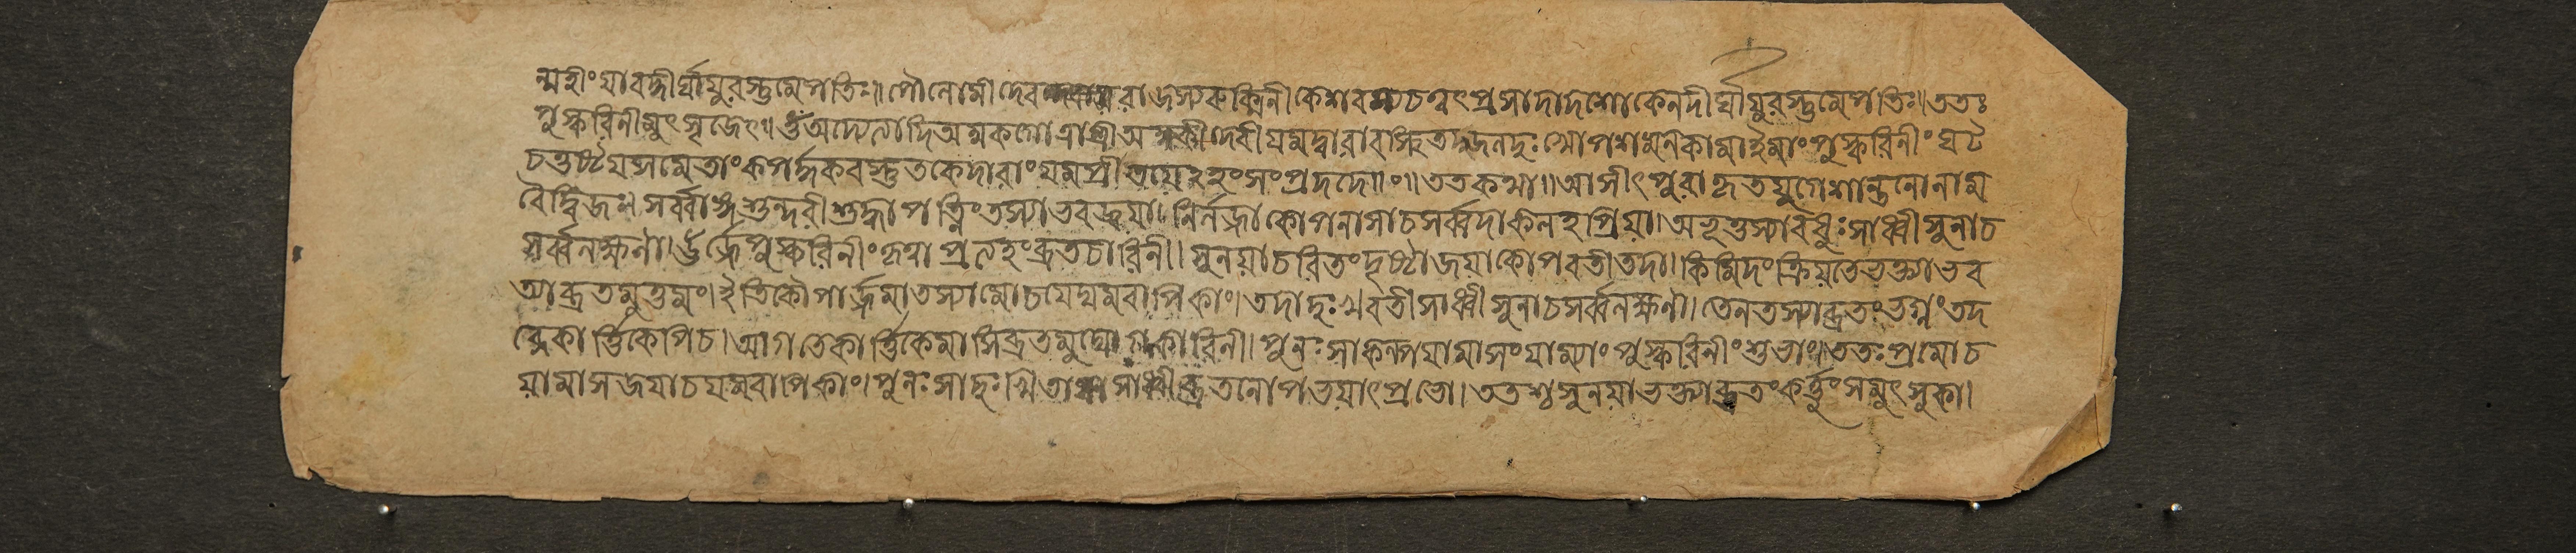 ন্মহীং যাবদ্দীর্ঘায়ুরস্তুমেপতিঃ॥ পৌলোমী দেব রাজস্য রুক্মিনী কেশবস্যচ তদ্বৎ প্রসাদাদশোকেন দীর্ঘায়ুরস্তুমেপতিঃ॥ ততঃ
পুস্করিনীমুৎসৃজেৎ॥ ওঁ অদ্যেত্যাদি অমুকগোত্রা শ্রীঅমুকী দেবী যমদ্বারাবস্থিত দুঃখোপশমনকামা ইমাং পুস্করিনীং ঘট
চতুষ্টয়সমেতাং কপর্দ্দকবস্তুতকেদারাং যমপ্রীতয়েঽহং সংপ্রদদে॥ ততকথা॥ আসীৎপুরা কৃতযুগে শান্তনো নাম
বৈ দ্বিজঃ। সর্ব্বাঙ্গ শুন্দরী শুদ্ধা পত্নিং তস্যাভবজ্জয়া। নির্লজ্জা কোপনা সাচ সর্ব্বদা কলহপ্রিয়া। অভূত্তস্যাবধুঃ সাধ্বী সুনাচ
সর্ব্বলক্ষণা। ঊর্জ্জে পুস্করিনীং কৃত্বা প্রত্যহং ব্রতচারিনী। সুনয়া চরিতং দৃষ্টা জয়া কোপবতী তদা। কিমিদং ক্রিয়তে ভক্ত্যা ভব
ত্যা ব্রতমুত্তমং। ইতি কৌপার্জ্জমা তস্যা মোচয়েদ্যমবাপিকাং। তদা দুঃখবতী সাধ্বী সুনাচ সর্ব্বলক্ষণা। তেন তস্যা ব্রতং ভগ্নং তদ
ব্দে কার্ত্তিকেপিচ। আগতে কার্ত্তিকেমাসি ব্রতমুদ্যোগকারিনী। পুনঃ সা কল্পয়ামাস যাম্যাং পুস্করিনীং শুভাং॥ ততঃ প্রমোচ
য়ামাস জয়াচ যমবাপিকাং। পুনঃ সা দুঃখিতা সাধ্বী ব্রতলোপভয়াৎ প্রভো। ততশ্ব সুনয়া ভক্ত্যা ব্রতং কর্ত্তুং সমুৎসুকা।